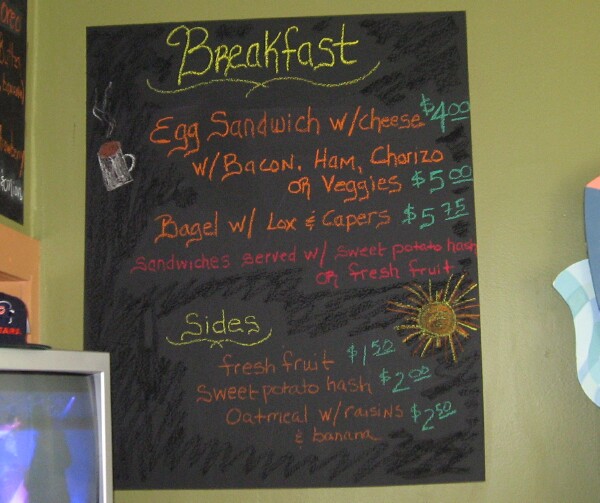 Breakfast
Egg Sandwich w/cheese $4.00
w/Bacon, Ham, Chorizo
or Veggies $5.00
Bagel w/ Lox & Capers $5.75
Sandwiches served w/ sweet potato hash
OR fresh fruit
Sides
fresh fruit $1.50
Sweet potato hash $2.00
Oatmeal w/raisins $2.50
& banana